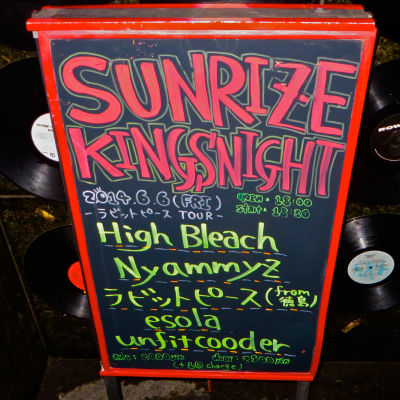 SUNRIZE
KINGS'NIGHT
2014.6.6(FRI) open・18:00
-ラビットピース TOUR- start・18:30
High Bleach
Nyammyz
ラビットピース(from徳島)
esola
unfitcooder